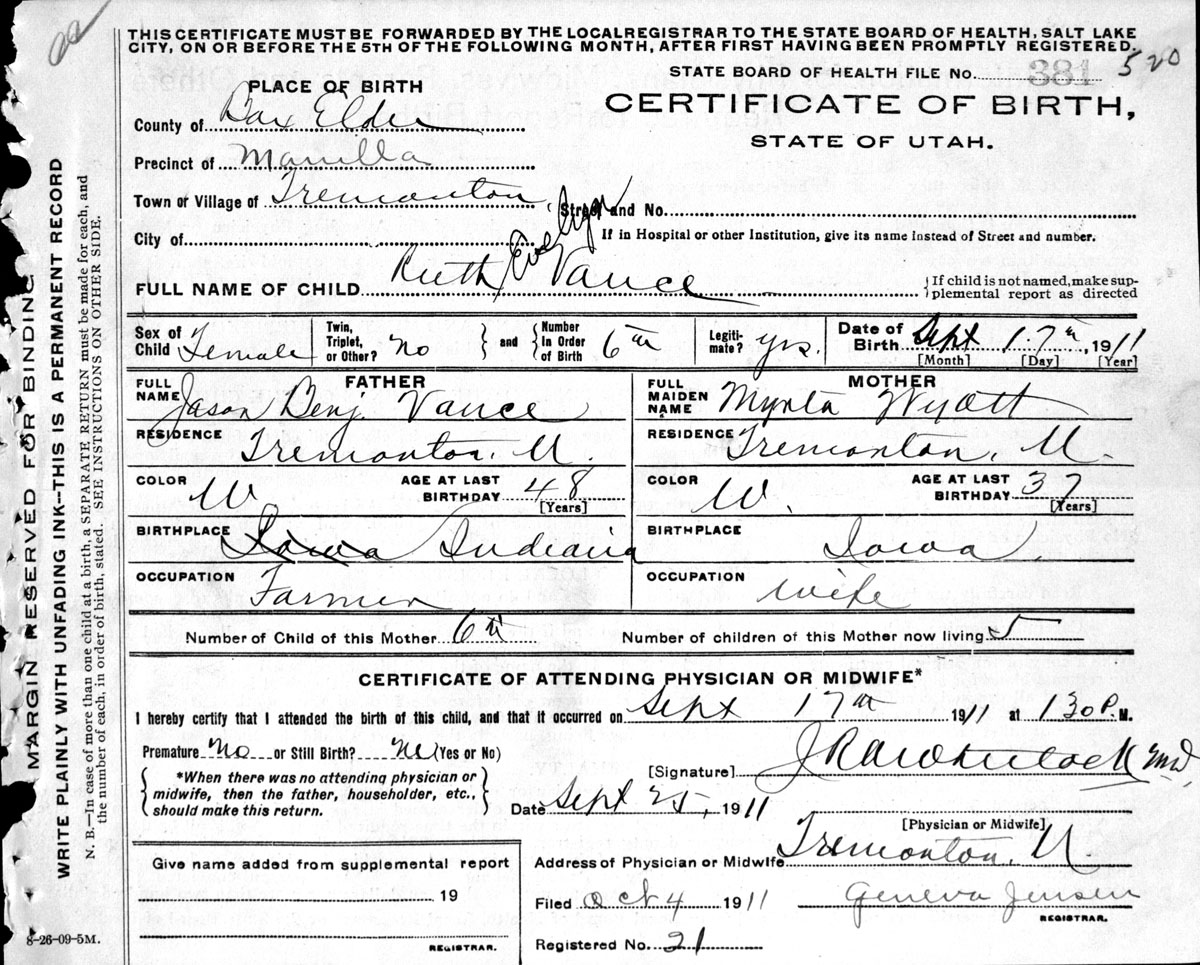 THIS CERTIFICATE MUST BE FORWARDED BY THE LOCALREGISTRAR TO THE STATE BOARD OF HEALTH, SALT LAKE
CITY, ON OR BEFORE THE 5TH OF THE FOLLOWING MONTH, AFTER FIRST HAVING BEEN PROMPTLY REGISTERED.
STATE BOARD OF HEALTH FILE No. 381 520
PLACE OF BIRTH
CERTIFICATE OF BIRTH,
STATE OF UTAH.
County of Box Elder
Precinct of Manilla
Town or Village of Tremonton, Street and No.
City of If in Hospital or other Institution, give its name instead of Street and number.
FULL NAME OF CHILD Ruth Evelyn Vance {If child is not named, make sup-
plemental report as directed
Sex of Child Female Twin, Triplet, or Other? No } and { Number In Order of Birth 6th Legiti-mate? yes. Date of Birth Sept 17th, 1911
[Month] [Day] [Year]
FATHER MOTHER
FULL NAME Jason Benj. Vance FULL MAIDEN NAME Myrta Wyatt
RESIDENCE Tremonton, U. RESIDENCE Tremonton, U.
COLOR W. AGE AT LAST BIRTHDAY 48 [Years] COLOR W. AGE AT LAST BIRTHDAY 37 [Years]
BIRTHPLACE Iowa Indiana BIRTHPLACE Iowa.
OCCUPATION Farmer OCCUPATION wife
Number of Child of this Mother 6th Number of children of this Mother now living 5
CERTIFICATE OF ATTENDING PHYSICIAN OR MIDWIFE*
I hereby certify that I attended the birth of this child, and that it occurred on Sept 17th 1911 at 130 P. M.
Premature No or Still Birth? No (Yes or No)
{ *When there was no attending physician or
midwife, then the father, householder, etc.,
should make this return. }
[Signature] MD
Date Sept 25, 1911
[Physician or Midwife]
Address of Physician or Midwife Tremonton, U.
Filed Oct 4 1911 Geneva Jensen
REGISTRAR.
Registered No. 21
Give name added from supplemental report
19
REGISTRAR.
8-26-09-5M.
MARGIN RESERVED FOR BINDING
WRITE PLAINLY WITH UNFADING INK--THIS IS A PERMANENT RECORD
N. B.—In case of more than one child at a birth, a SEPARATE RETURN must be made for each, and
the number of each, in order of birth, stated. SEE INSTRUCTIONS ON OTHER SIDE.